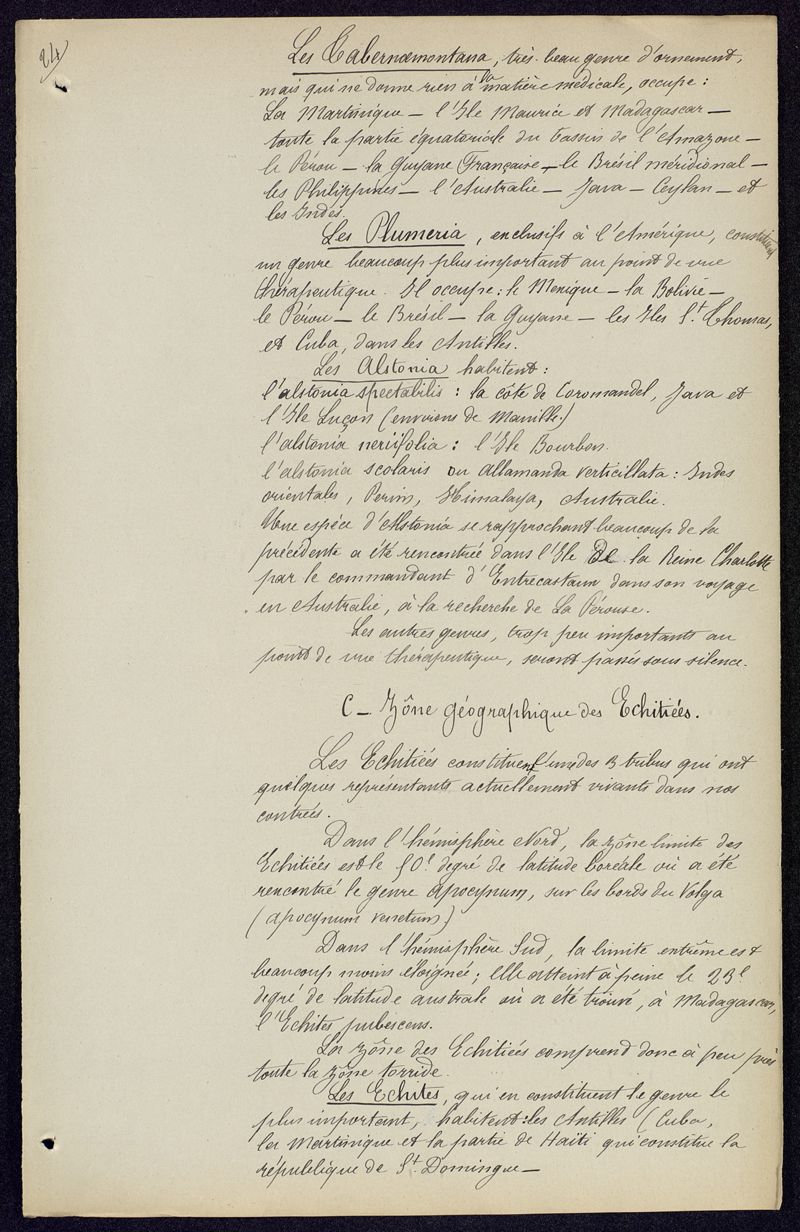 24
Les Tabernœmontana, très beau genre d'ornement,
mais qui ne donne rien à la matière médicale, occupe :
La Martinique — l'Ile Maurice et Madagascar —
toute la partie équatoriale du bassin de l'Amazone —
le Pérou — la Guyane Française — le Brésil méridional —
les Philippines — l'Australie — Java — Ceylan — et
les Indes.
Les Plumeria, exclusifs à l'Amérique, constituent
un genre beaucoup plus important au point de vue
thérapeutique. Il occupe : le Mexique — la Bolivie —
le Pérou — le Brésil — la Guyane — les Iles St. Thomas,
et Cuba, dans les Antilles.
Les Alstonia habitent :
l'alstonia spectabilis : la côte de Coromandel, Java et
l'Ile Luçon (environs de Manille)
l'alstonia neriifolia : l'Ile Bourbon.
l'alstonia scolaris ou allamanda verticillata : Indes
orientales, Perim, Himalaya, Australie.
Une espèce d'Alstonia se rapprochant beaucoup de la
précédente a été rencontrée dans l'Ile de la Reine Charlotte
par le commandant d'Entrecastaux dans son voyage
en Australie, à la recherche de La Pérouse.
Les autres genres, trop peu importants au
point de vue thérapeutique, seront passés sous silence.
C — Zône géographique des Echitiées.
Les Echitiées constituent l'une des 3 tribus qui ont
quelques représentants actuellement vivants dans nos
contrées.
Dans l'hémisphère Nord, la zône limite des
Echitiées est le 50e degré de latitude boréale où a été
rencontré le genre apocynum, sur les bords du Volga
(apocynum venetum)
Dans l'hémisphère Sud, la limite extrême est
beaucoup moins éloignée ; elle atteint à peine le 23e
degré de latitude australe où a été trouvé, à Madagascar,
l'Echites pubescens.
La zône des Echitiées comprend donc à peu près
toute la zône torride.
Les Echites, qui en constituent le genre le
plus important, habitent : les Antilles (Cuba,
la Martinique et la partie de Haïti qui constitue la
république de St. Domingue —